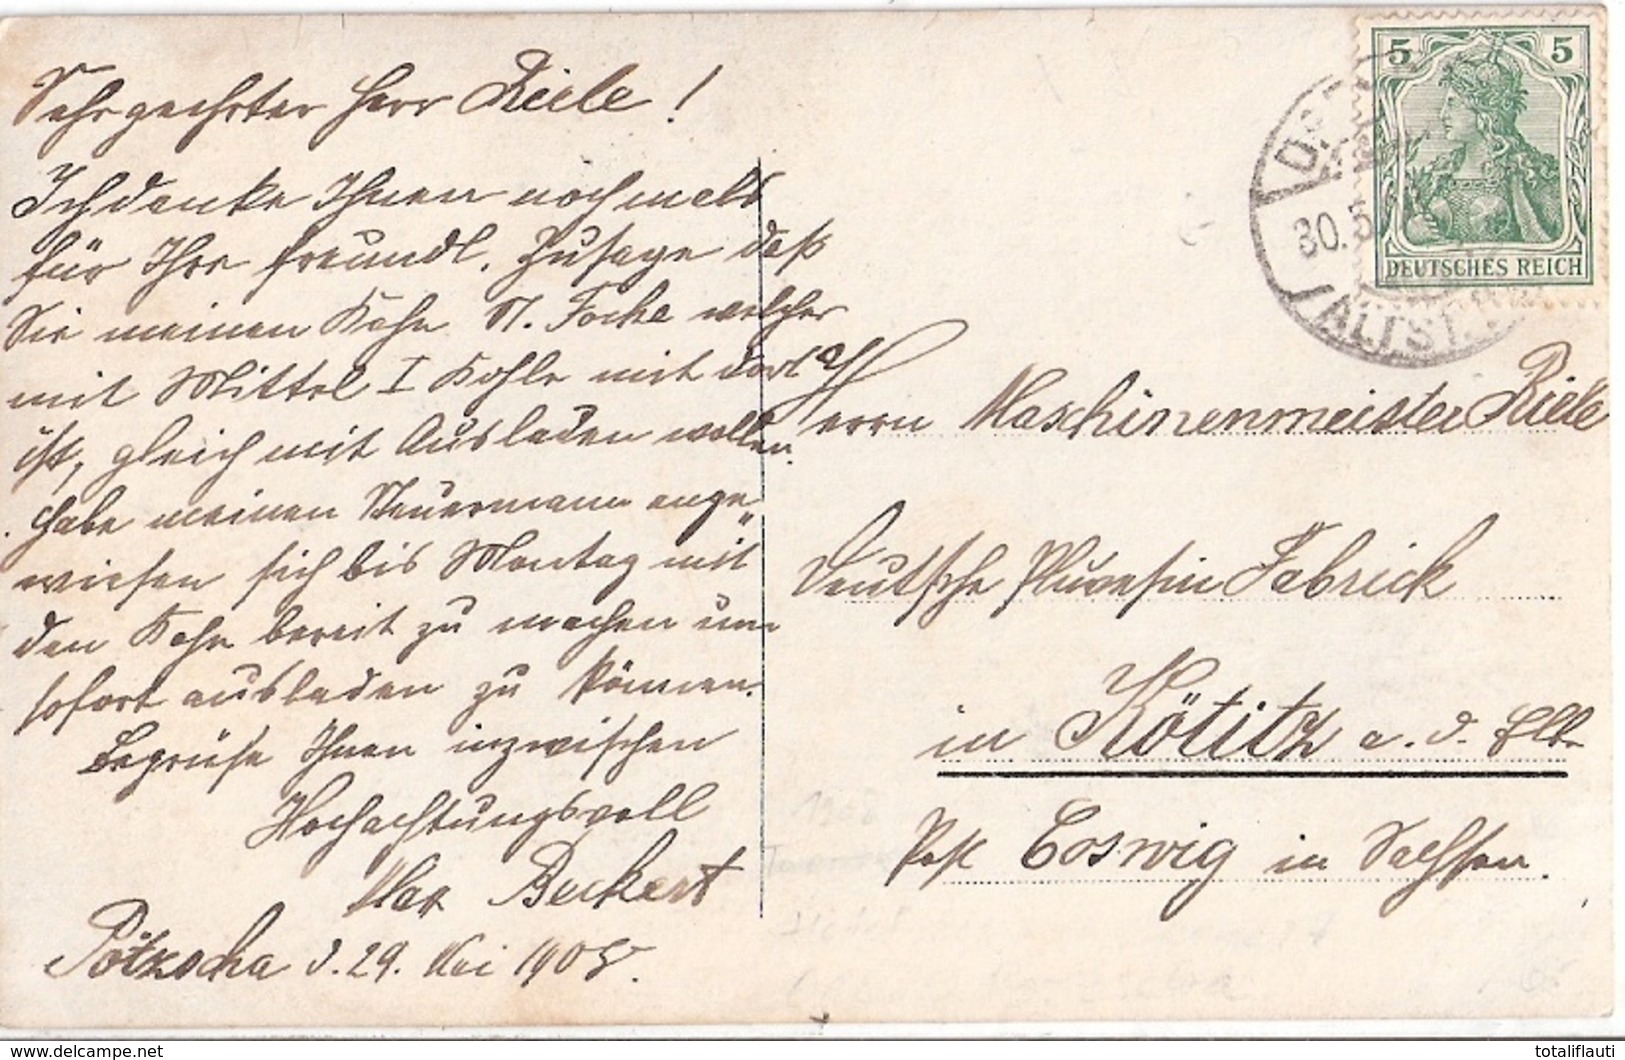 Sehrgeehrter Herr Riele!
Ich danke Ihnen nochmals
für Ihre freundl. Zusage daß
Sie meinen Kahn St. Focke welcher
mit Mittel I Kohle mit dort
ist, gleich mit Ausladen wollen.
Habe meinen Steuermann ange„
wiesen sich bis Montag mit
den Kahn bereit zu machen um
sofort ausladen zu können.
Begrüße Ihnen inzwischen
Hochachtungsvoll
Max Beckert
Pötzscha d. 29. Mai 1908.
5 5
DEUTSCHES REICH
30.5
ALTST.
Herrn Maschinenmeister Riele
Deutsche Fabrick
in Kötitz a. d. Elbe
Post Coswig in Sachsen.
1908
www.delcampe.net
totaliflauti